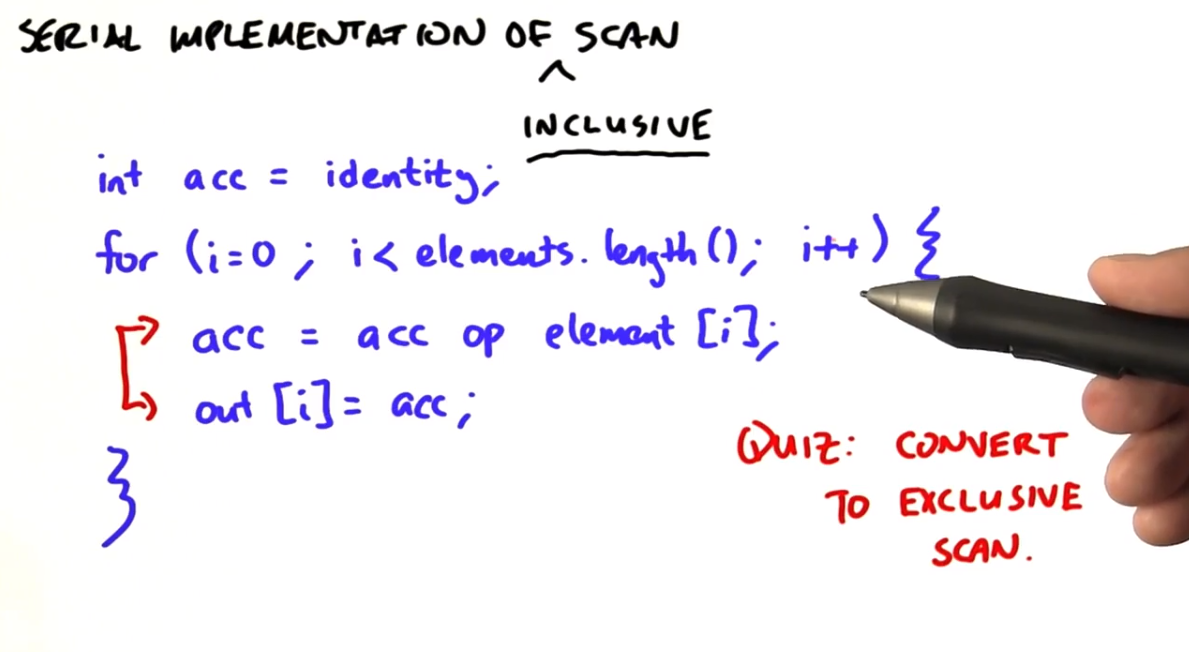 SERIAL IMPLEMENTATION OF SCAN
^
INCLUSIVE
int acc = identity;
for (i=0 ; i< elements.length(); i++) {
acc = acc op element [i];
out [i]= acc;
}
QUIZ: CONVERT
TO EXCLUSIVE
SCAN.